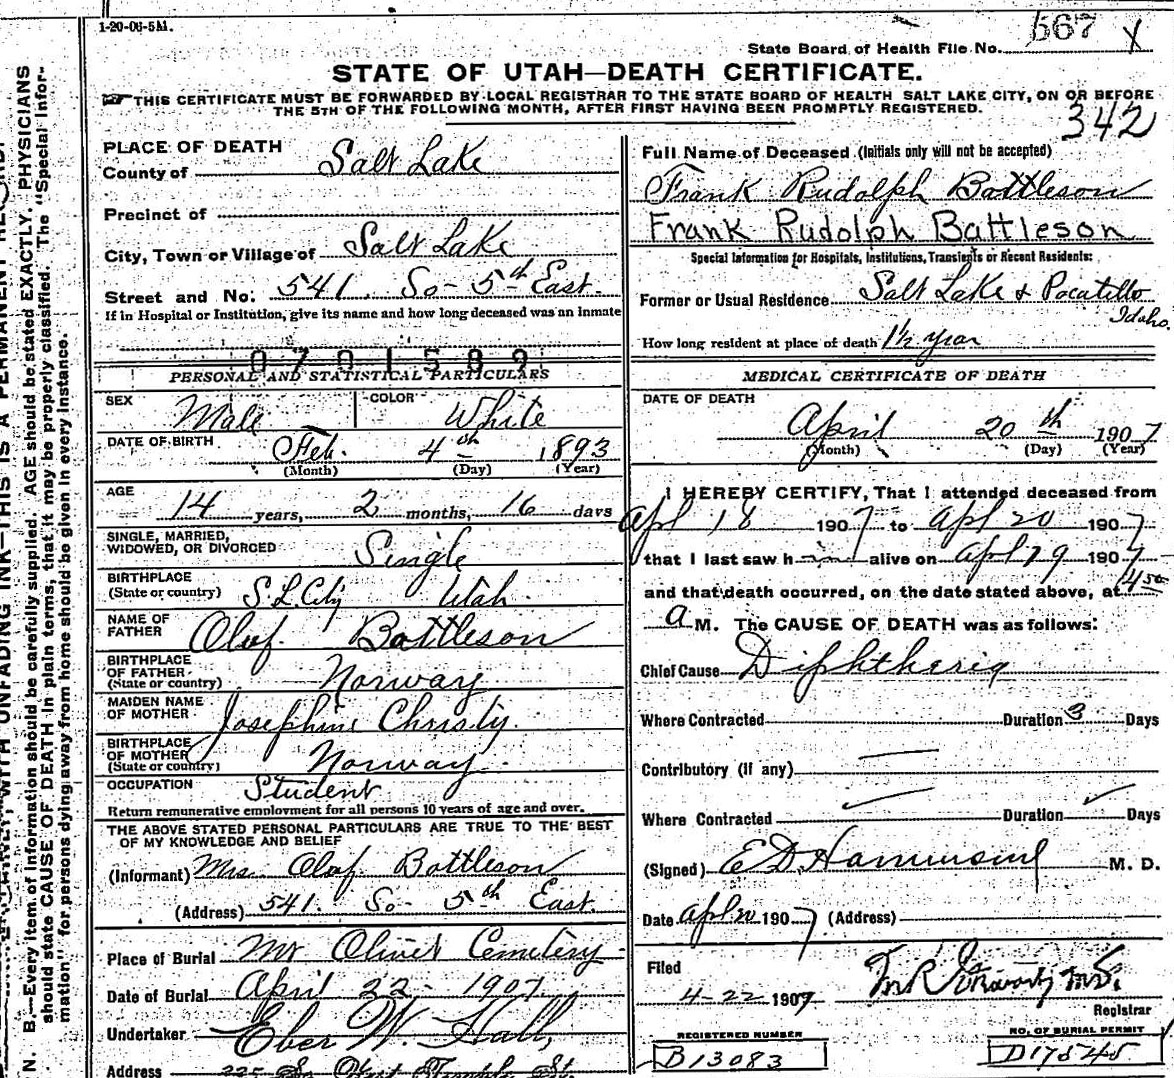 1-20-06-5M.
State Board of Health File No. 567 X
STATE OF UTAH—DEATH CERTIFICATE.
THIS CERTIFICATE MUST BE FORWARDED BY LOCAL REGISTRAR TO THE STATE BOARD OF HEALTH SALT LAKE CITY, ON OR BEFORE
THE 5TH OF THE FOLLOWING MONTH, AFTER FIRST HAVING BEEN PROMPTLY REGISTERED.
342
PLACE OF DEATH
County of Salt Lake
Precinct of
City, Town or Village of Salt Lake
Street and No: 541. So- 5th East.
If in Hospital or Institution, give its name and how long deceased was an inmate
0701589
PERSONAL AND STATISTICAL PARTICULARS
SEX Male COLOR White
DATE OF BIRTH Feb. 4th 1893
(Month) (Day) (Year)
AGE 14 years, 2 months, 16 days
SINGLE, MARRIED,
WIDOWED, OR DIVORCED Single
BIRTHPLACE
(State or country) S.L. City Utah.
NAME OF
FATHER Olof Battleson
BIRTHPLACE
OF FATHER
(State or country) Norway
MAIDEN NAME
OF MOTHER Josephine Christy.
BIRTHPLACE
OF MOTHER
(State or country) Norway
OCCUPATION Student
Return remunerative employment for all persons 10 years of age and over.
THE ABOVE STATED PERSONAL PARTICULARS ARE TRUE TO THE BEST
OF MY KNOWLEDGE AND BELIEF
(Informant) Mrs. Olof Battleson
(Address) 541. So- 5th East.
Place of Burial Mt Olivet Cemetery
Date of Burial April 22- 1907.
Undertaker Eber W. Hall,
Address 225 So West Temple St.
Full Name of Deceased (Initials only will not be accepted)
Frank Rudolph Battleson
Frank Rudolph Battleson
Special Information for Hospitals, Institutions, Transients or Recent Residents:
Former or Usual Residence Salt Lake & Pocatillo
Idaho.
How long resident at place of death 1½ year
MEDICAL CERTIFICATE OF DEATH
DATE OF DEATH
April 20th 1907
(Month) (Day) (Year)
I HEREBY CERTIFY, That I attended deceased from
Apl 18 1907 to Apl 20 1907
that I last saw him alive on Apl 19 1907
and that death occurred, on the date stated above, at 4:50
a M. The CAUSE OF DEATH was as follows:
Chief Cause Diphtheria
Where Contracted Duration 3 Days
Contributory (if any)
Where Contracted Duration Days
(Signed) M. D.
Date Apl 20 1907 (Address)
Filed
4-22 1907
Registrar
REGISTERED NUMBER
B13083
NO. OF BURIAL PERMIT
D17545
N. B.—Every item of information should be carefully supplied. AGE should be stated EXACTLY. PHYSICIANS
should state CAUSE OF DEATH in plain terms, that it may be properly classified. The "Special Infor-
mation" for persons dying away from home should be given in every instance.
WITH UNFADING INK—THIS IS A PERMANENT